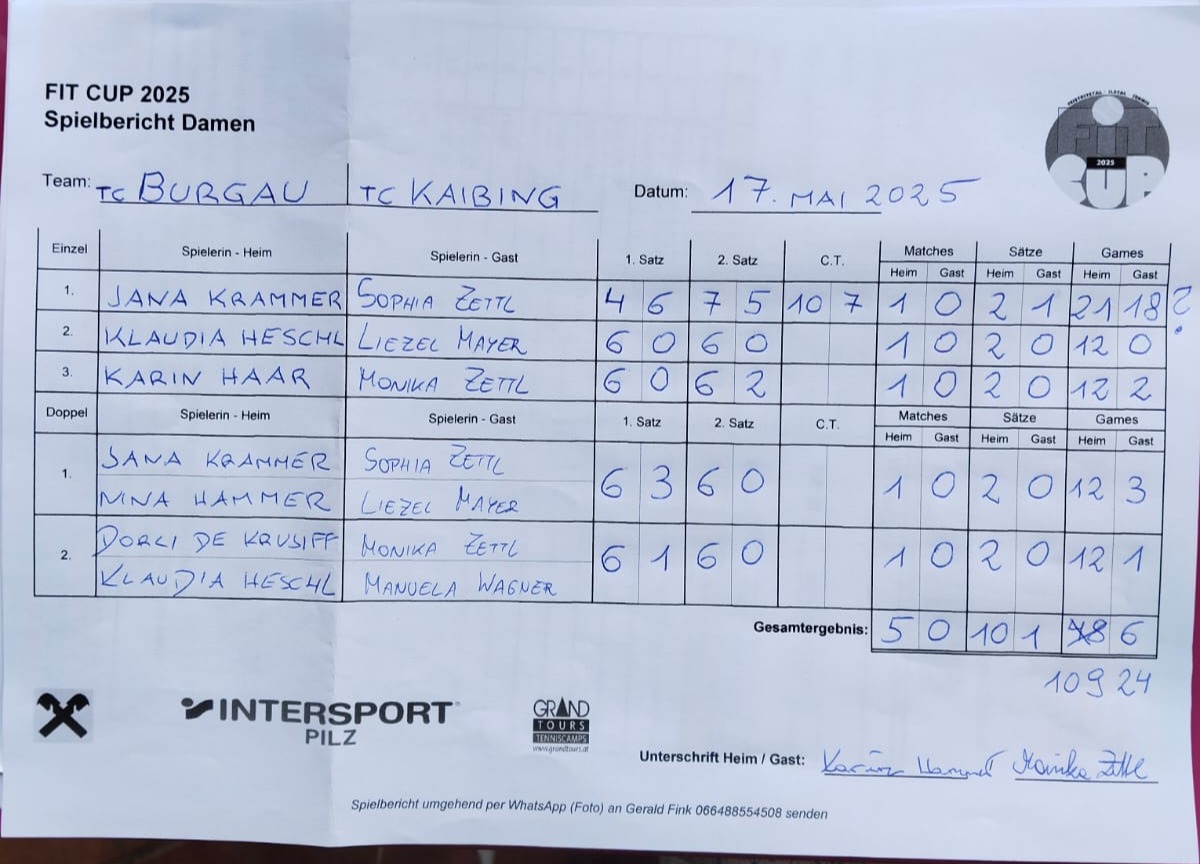 FIT CUP 2025
Spielbericht Damen
FIT CUP 2025
Team: TC BURGAU TC KAIBING Datum: 17. MAI 2025
Einzel Spielerin - Heim Spielerin - Gast 1. Satz 2. Satz C.T. Matches Sätze Games
Heim Gast Heim Gast Heim Gast
1. JANA KRAMMER SOPHIA ZETTL 4 6 7 5 10 7 1 0 2 1 21 18 ?
2. KLAUDIA HESCHL LIEZEL MAYER 6 0 6 0 1 0 2 0 12 0
3. KARIN HAAR MONIKA ZETTL 6 0 6 2 1 0 2 0 12 2
Doppel Spielerin - Heim Spielerin - Gast 1. Satz 2. Satz C.T. Matches Sätze Games
Heim Gast Heim Gast Heim Gast
1. JANA KRAMMER SOPHIA ZETTL 6 3 6 0 1 0 2 0 12 3
NINA HAMMER LIEZEL MAYER
2. DORLI DE KRUSIFF MONIKA ZETTL 6 1 6 0 1 0 2 0 12 1
KLAUDIA HESCHL MANUELA WAGNER
Gesamtergebnis: 5 0 10 1 48 6
109 24
INTERSPORT
PILZ
GRAND
TOURS
TENNISCAMPS
www.grandtours.at
Unterschrift Heim / Gast: Monika Zettl
Spielbericht umgehend per WhatsApp (Foto) an Gerald Fink 066488554508 senden